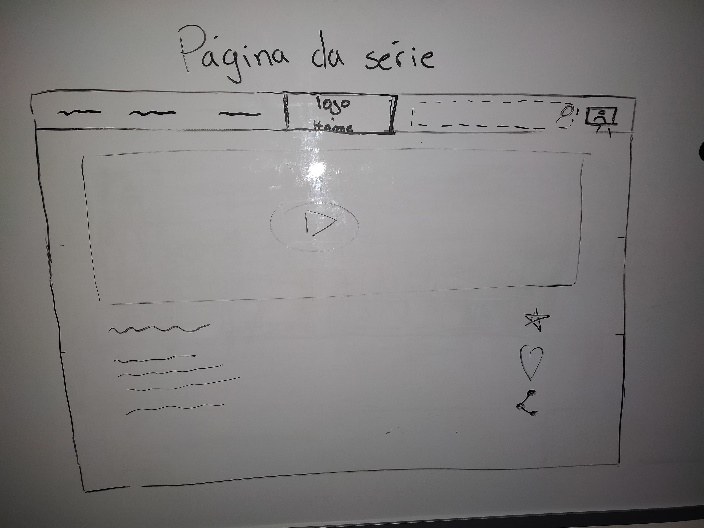 Página da série
logo
Home